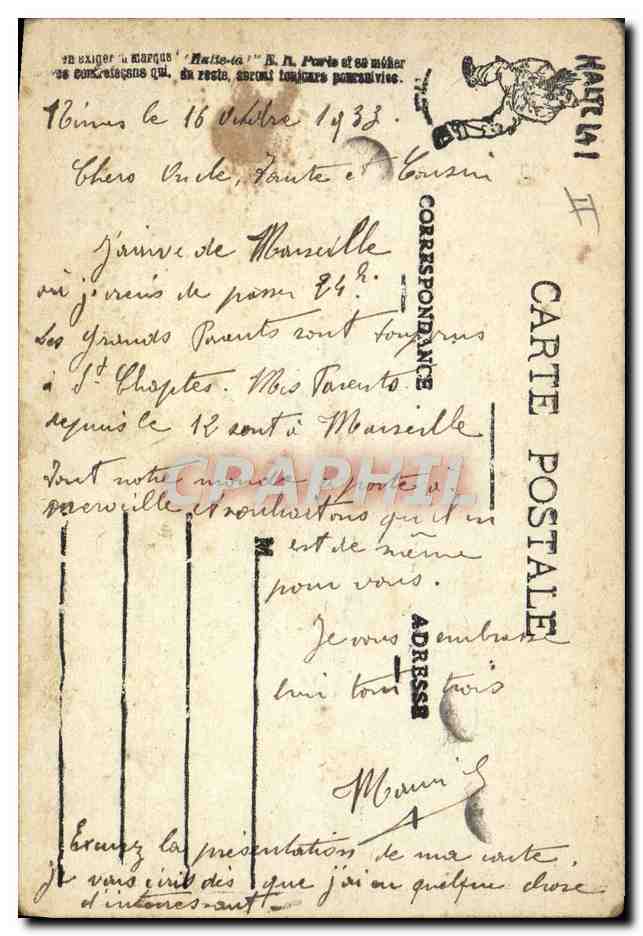 en exiger la marque "Halte-là" E. R. Paris et se méfier
des contrefaçons qui, du reste, seront toujours poursuivies.
HALTE LA !
II
CARTE POSTALE
CORRESPONDANCE
ADRESSE
M
Nimes le 16 Octobre 1933.
Chers Oncle, Tante et Cousin
J'arrive de Marseille
où je viens de passer 24h.
Les Grands Parents sont toujours
à St Chaptes. Mes Parents
depuis le 12 sont à Marseille
Tout notre monde se porte à
merveille et souhaitons qu'il en
est de même
pour vous.
Je vous embrasse
bien tous trois
Maurice
Excusez la présentation de ma carte,
je vous écris dès que j'ai eu quelque chose
d'intéressant.
CPAPHIL